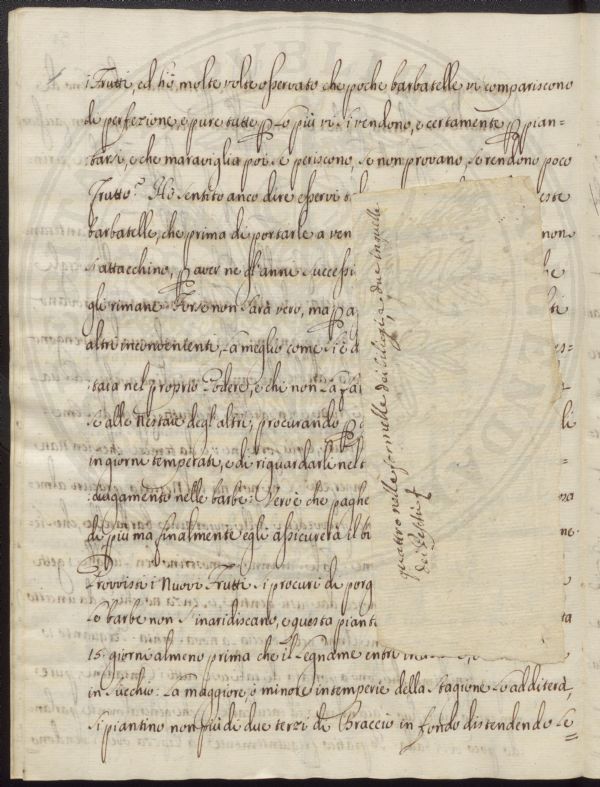 i Frutti, ed hò, molte volte osservato che poche barbatelle vi compariscono
di perfezione, e pure tutte p lo più vi si vendono, e certamente p pian=
tarsi, e che maraviglia poi se periscono, se non provano, se rendono poco
Frutto? Hò sentito anco dire esservi
barbatelle, che prima di portarle a ven non
s'attacchino, p aver ne gl'anni successi
gli rimane. Forse non sarà vero, ma p
altri inconvenienti, fà meglio come si è d es=
taia nel proprio Podere, e chi non la fà
se alle Nestaie degl'altri, procurando li
in giorni temperati, e di riguardarli nel
:diagamento nelle barbe: Ver'è che paghe
di più ma finalmente egli assicurerà il
Provvisti i Nuovi Frutti si procuri di porg
le barbe non s'inaridiscano, e questa pianta ta
15. giorni almeno prima che il Legname entri
in succhio: La maggiore, o minore intemperie della Stagione lo additerà,
si piantino non più di due terzi di Braccio in fondo distendendo le
quattro nelle formelle dei Ciliegi, e due in quelle
dei Peschi